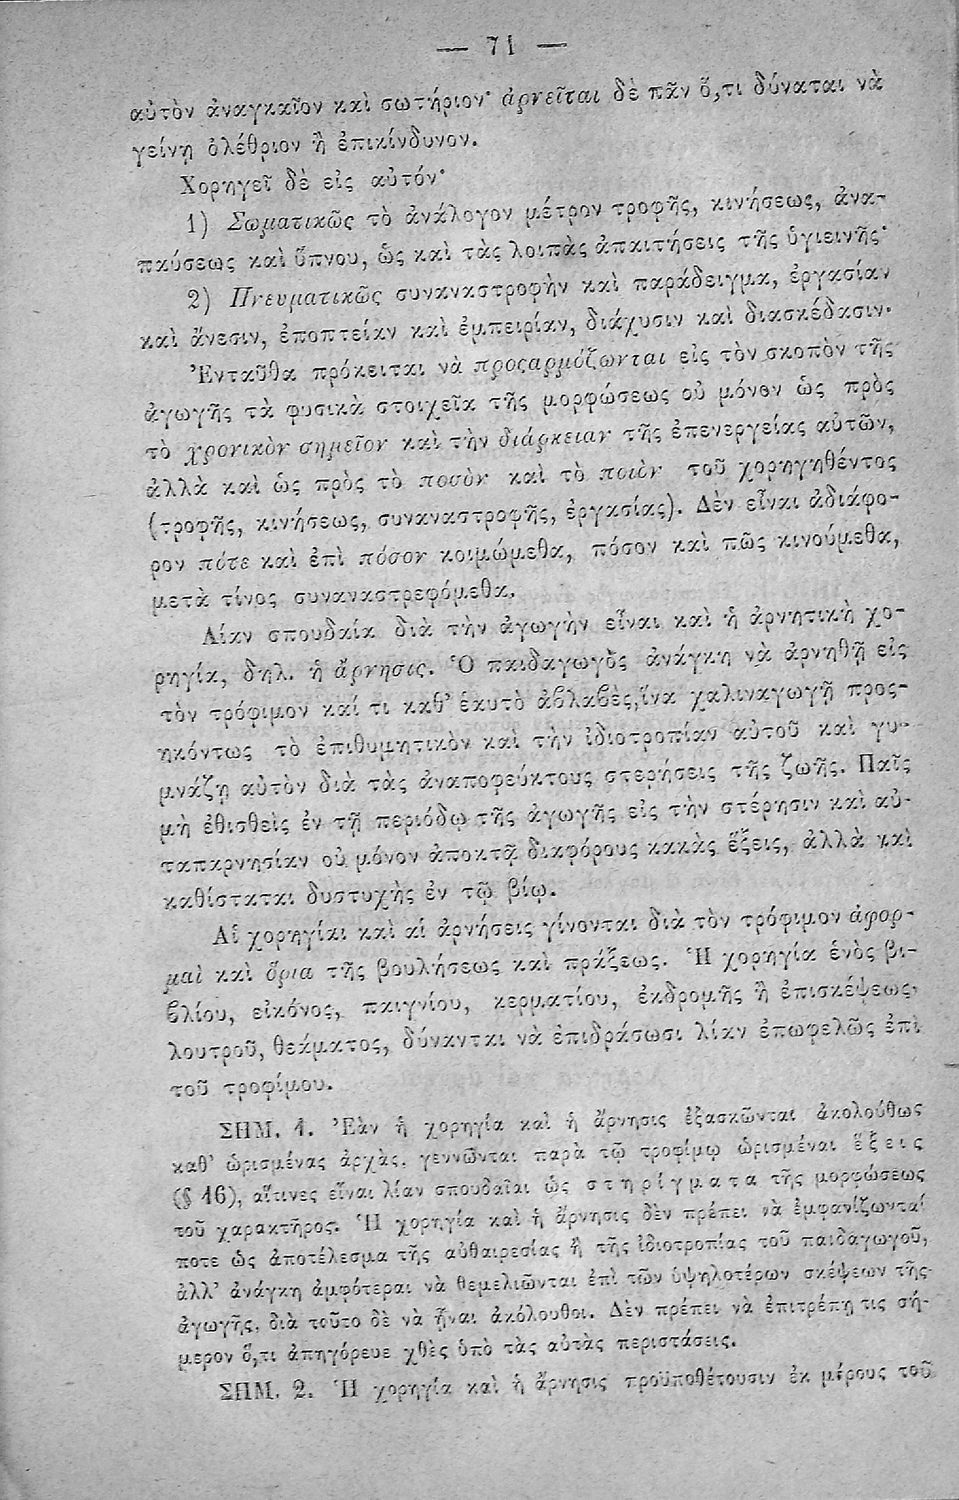 — 71 —
αὐτὸν ἀναγκαῖον καὶ σωτήριον· ἀρνεῖται δὲ πᾶν ὅ,τι δύναται νὰ
γείνῃ ὀλέθριον ἢ ἐπικίνδυνον.
Χορηγεῖ δὲ εἰς αὐτόν·
1) Σωματικῶς τὸ ἀνάλογον μέτρον τροφῆς, κινήσεως, ἀνα-
παύσεως καὶ ὕπνου, ὡς καὶ τὰς λοιπὰς ἀπαιτήσεις τῆς ὑγιεινῆς·
2) Πνευματικῶς συναναστροφὴν καὶ παράδειγμα, ἐργασίαν
καὶ ἄνεσιν, ἐποπτείαν καὶ ἐμπειρίαν, διάχυσιν καὶ διασκέδασιν.
Ἐνταῦθα πρόκειται νὰ προςαρμόζωνται εἰς τὸν σκοπὸν τῆς
ἀγωγῆς τὰ φυσικὰ στοιχεῖα τῆς μορφώσεως οὐ μόνον ὡς πρὸς
τὸ χρονικὸν σημεῖον καὶ τὴν διάρκειαν τῆς ἐπενεργείας αὐτῶν,
ἀλλὰ καὶ ὡς πρὸς τὸ ποσὸν καὶ τὸ ποιὸν τοῦ χορηγηθέντος
(τροφῆς, κινήσεως, συναναστροφῆς, ἐργασίας). Δὲν εἶναι ἀδιάφο-
ρον πότε καὶ ἐπὶ πόσον κοιμώμεθα, πόσον καὶ πῶς κινούμεθα,
μετὰ τίνος συναναστρεφόμεθα.
Λίαν σπουδαία διὰ τὴν ἀγωγὴν εἶναι καὶ ἡ ἀρνητικὴ χο-
ρηγία, δηλ. ἡ ἄρνησις. Ὁ παιδαγωγὸς ἀνάγκη νὰ ἀρνηθῇ εἰς
τὸν τρόφιμον καί τι καθ' ἑαυτὸ ἀβλαβὲς, ἵνα χαλιναγωγῇ προς-
ηκόντως τὸ ἐπιθυμητικὸν καὶ τὴν ἰδιοτροπίαν αὐτοῦ καὶ γυ-
μνάζῃ αὐτὸν διὰ τὰς ἀναποφεύκτους στερήσεις τῆς ζωῆς. Παῖς
μὴ ἐθισθεὶς ἐν τῇ περιόδῳ τῆς ἀγωγῆς εἰς τὴν στέρησιν καὶ αὐ-
ταπαρνησίαν οὐ μόνον ἀποκτᾷ διαφόρους κακὰς ἕξεις, ἀλλὰ καὶ
καθίσταται δυστυχὴς ἐν τῷ βίῳ.
Αἱ χορηγίαι καὶ αἱ ἀρνήσεις γίνονται διὰ τὸν τρόφιμον ἀφορ-
μαὶ καὶ ὅρια τῆς βουλήσεως καὶ πράξεως. Ἡ χορηγία ἑνὸς βι-
βλίου, εἰκόνος, παιγνίου, κερματίου, ἐκδρομῆς ἢ ἐπισκέψεως,
λουτροῦ, θεάματος, δύνανται νὰ ἐπιδράσωσι λίαν ἐπωφελῶς ἐπὶ
τοῦ τροφίμου.
ΣΗΜ. 1. Ἐὰν ἡ χορηγία καὶ ἡ ἄρνησις ἐξασκῶνται ἀκολούθως
καθ' ὡρισμένας ἀρχὰς, γεννῶνται παρὰ τῷ τροφίμῳ ὡρισμέναι ἕξεις
(§ 16), αἵτινες εἶναι λίαν σπουδαῖαι ὡς στηρίγματα τῆς μορφώσεως
τοῦ χαρακτῆρος. Ἡ χορηγία καὶ ἡ ἄρνησις δὲν πρέπει νὰ ἐμφανίζωνταί
ποτε ὡς ἀποτέλεσμα τῆς αὐθαιρεσίας ἢ τῆς ἰδιοτροπίας τοῦ παιδαγωγοῦ,
ἀλλ' ἀνάγκη ἀμφότεραι νὰ θεμελιῶνται ἐπὶ τῶν ὑψηλοτέρων σκέψεων τῆς
ἀγωγῆς, διὰ τοῦτο δὲ νὰ ἦναι ἀκόλουθοι. Δὲν πρέπει νὰ ἐπιτρέπῃ τις σή-
μερον ὅ,τι ἀπηγόρευε χθὲς ὑπὸ τὰς αὐτὰς περιστάσεις.
ΣΗΜ. 2. Ἡ χορηγία καὶ ἡ ἄρνησις προϋποθέτουσιν ἐκ μέρους τοῦ